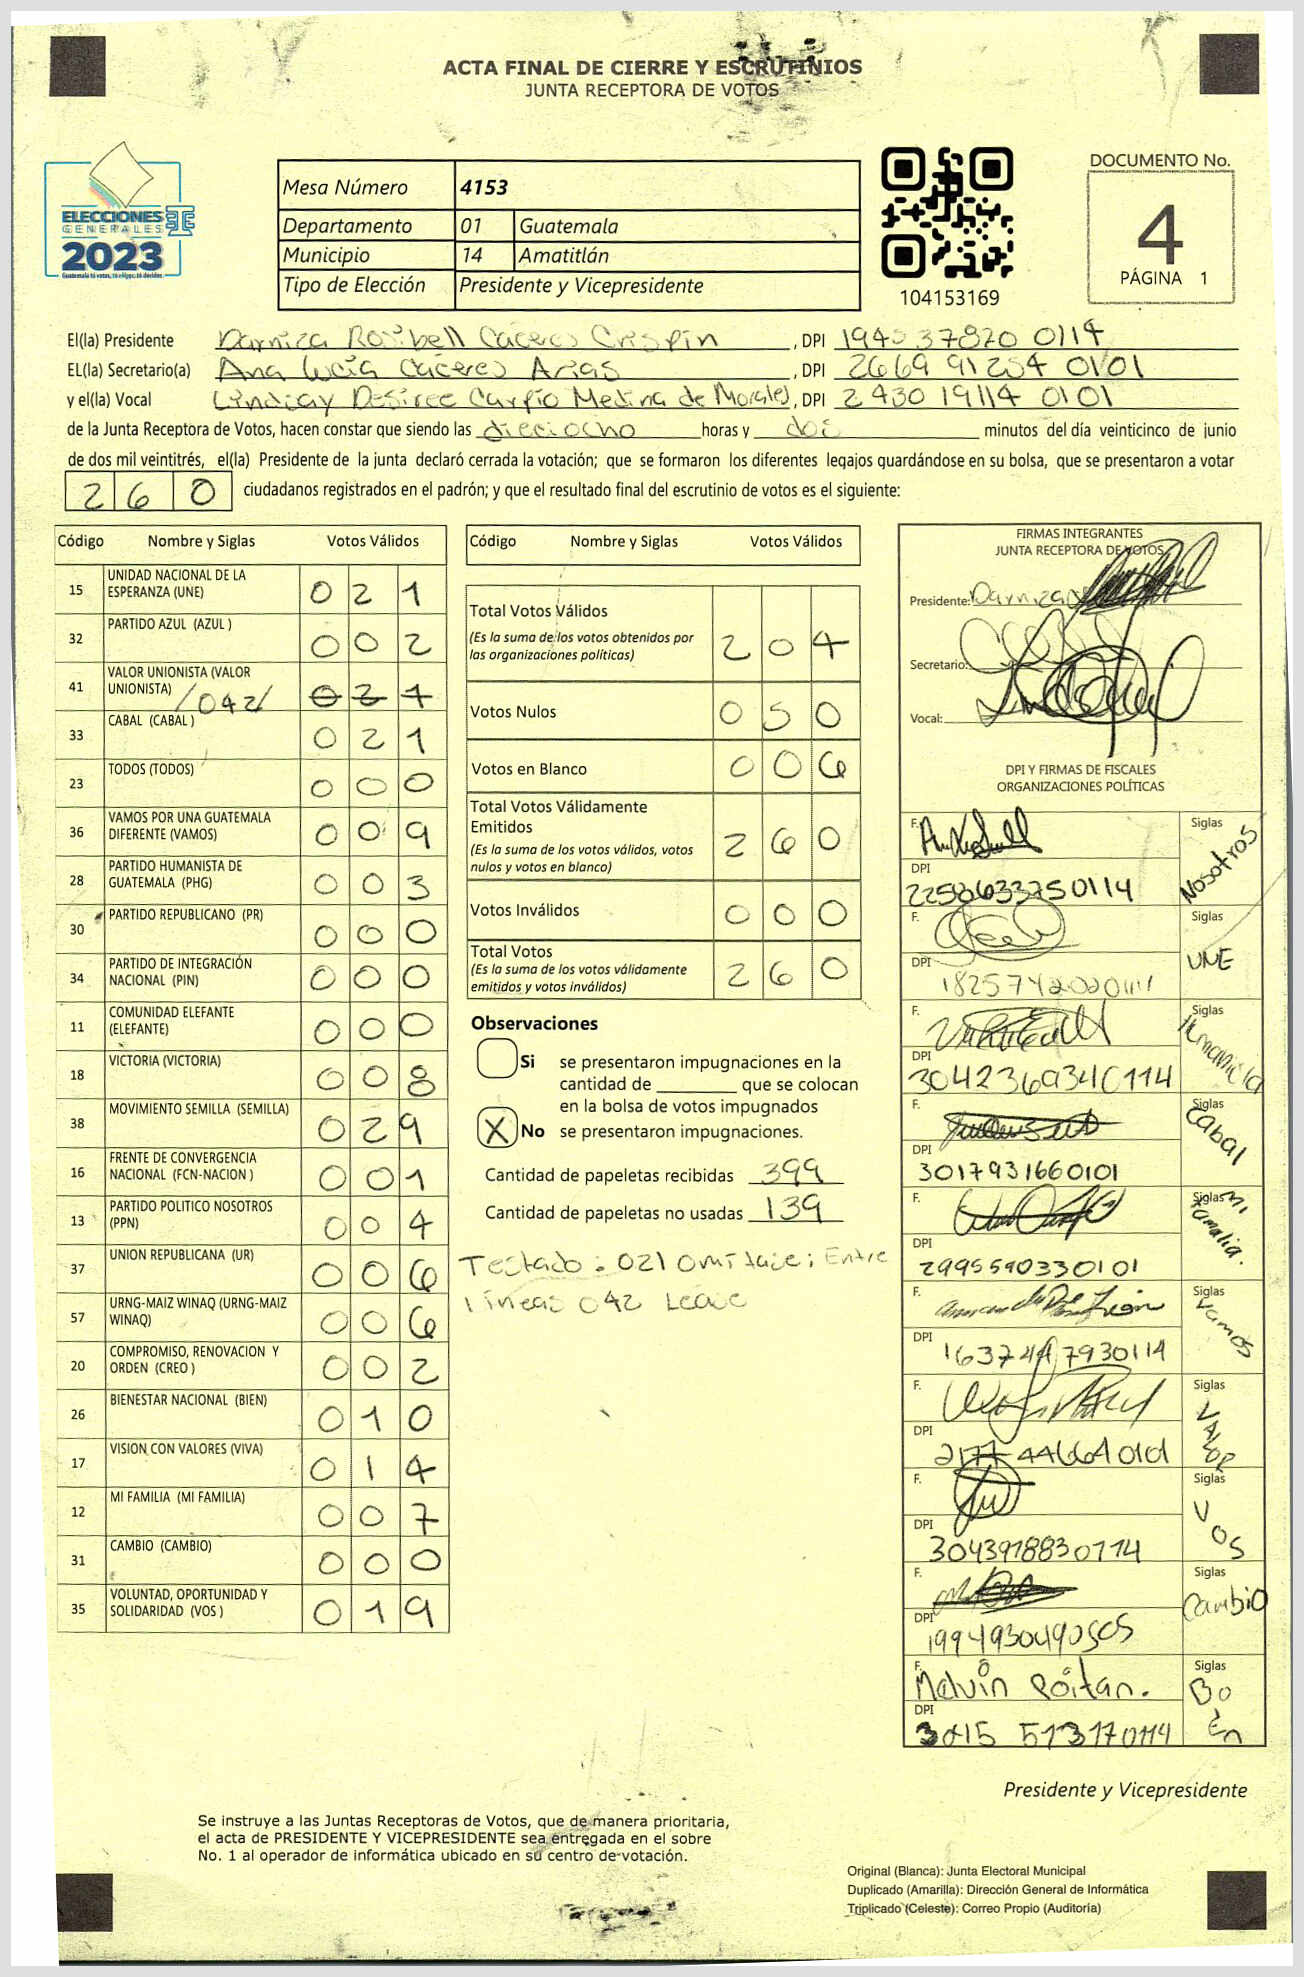 ACTA FINAL DE CIERRE Y ESCRUTINIOS
JUNTA RECEPTORA DE VOTOS
ELECCIONES
GENERALES
2023
TSE
Mesa Número 4153
Departamento 01 Guatemala
Municipio 14 Amatitlán
Tipo de Elección Presidente y Vicepresidente
104153169
DOCUMENTO No.
4
PÁGINA 1
El(la) Presidente Darniza Rosibell Cáceres Crispin, DPI 0114
EL(la) Secretario(a) Ana Lucía Cáceres Arias, DPI 2669 91254 0101
y el(la) Vocal Lindsay Desiree Carpio Medina de Morales, DPI 2430 19114 0101
de la Junta Receptora de Votos, hacen constar que siendo las dieciocho horas y dos minutos del día veinticinco de junio
de dos mil veintitrés, el(la) Presidente de la junta declaró cerrada la votación; que se formaron los diferentes legajos guardándose en su bolsa, que se presentaron a votar
260 ciudadanos registrados en el padrón; y que el resultado final del escrutinio de votos es el siguiente:
Código Nombre y Siglas Votos Válidos
15 UNIDAD NACIONAL DE LA ESPERANZA (UNE) 021
32 PARTIDO AZUL (AZUL ) 002
41 VALOR UNIONISTA (VALOR UNIONISTA) /042/ 021
33 CABAL (CABAL ) 021
23 TODOS (TODOS) 000
36 VAMOS POR UNA GUATEMALA DIFERENTE (VAMOS) 009
28 PARTIDO HUMANISTA DE GUATEMALA (PHG) 003
30 PARTIDO REPUBLICANO (PR) 000
34 PARTIDO DE INTEGRACIÓN NACIONAL (PIN) 000
11 COMUNIDAD ELEFANTE (ELEFANTE) 000
18 VICTORIA (VICTORIA) 008
38 MOVIMIENTO SEMILLA (SEMILLA) 029
16 FRENTE DE CONVERGENCIA NACIONAL (FCN-NACION ) 001
13 PARTIDO POLITICO NOSOTROS (PPN) 004
37 UNION REPUBLICANA (UR) 006
57 URNG-MAIZ WINAQ (URNG-MAIZ WINAQ) 006
20 COMPROMISO, RENOVACION Y ORDEN (CREO ) 002
26 BIENESTAR NACIONAL (BIEN) 010
17 VISION CON VALORES (VIVA) 014
12 MI FAMILIA (MI FAMILIA) 007
31 CAMBIO (CAMBIO) 000
35 VOLUNTAD, OPORTUNIDAD Y SOLIDARIDAD (VOS ) 019
Código Nombre y Siglas Votos Válidos
Total Votos Válidos 204
(Es la suma de los votos obtenidos por
las organizaciones políticas)
Votos Nulos 050
Votos en Blanco 006
Total Votos Válidamente
Emitidos 260
(Es la suma de los votos válidos, votos
nulos y votos en blanco)
Votos Inválidos 000
Total Votos 260
(Es la suma de los votos válidamente
emitidos y votos inválidos)
Observaciones
Si se presentaron impugnaciones en la
cantidad de ________ que se colocan
en la bolsa de votos impugnados
X No se presentaron impugnaciones.
Cantidad de papeletas recibidas 399
Cantidad de papeletas no usadas 139
Testado: 021 Omitase; Entre
lineas 042 Lease
FIRMAS INTEGRANTES
JUNTA RECEPTORA DE VOTOS
Presidente: Darniza
Secretario:
Vocal:
DPI Y FIRMAS DE FISCALES
ORGANIZACIONES POLÍTICAS
F. Siglas Nosotros
DPI 2258633750114
F. Siglas UNE
DPI
F. Siglas
DPI 3042369340114
F. Siglas Cabal
DPI 3017931660101
F. Siglas Mi Familia.
DPI 2995590330101
F. Siglas Vamos
DPI
F. Siglas VALOR
DPI
F. Siglas VOS
DPI 3043918830114
F. Siglas Cambio
DPI 1994930490505
F. Melvin Siglas
DPI
Presidente y Vicepresidente
Se instruye a las Juntas Receptoras de Votos, que de manera prioritaria,
el acta de PRESIDENTE Y VICEPRESIDENTE sea entregada en el sobre
No. 1 al operador de informática ubicado en su centro de votación.
Original (Blanca): Junta Electoral Municipal
Duplicado (Amarilla): Dirección General de Informática
Triplicado (Celeste): Correo Propio (Auditoría)